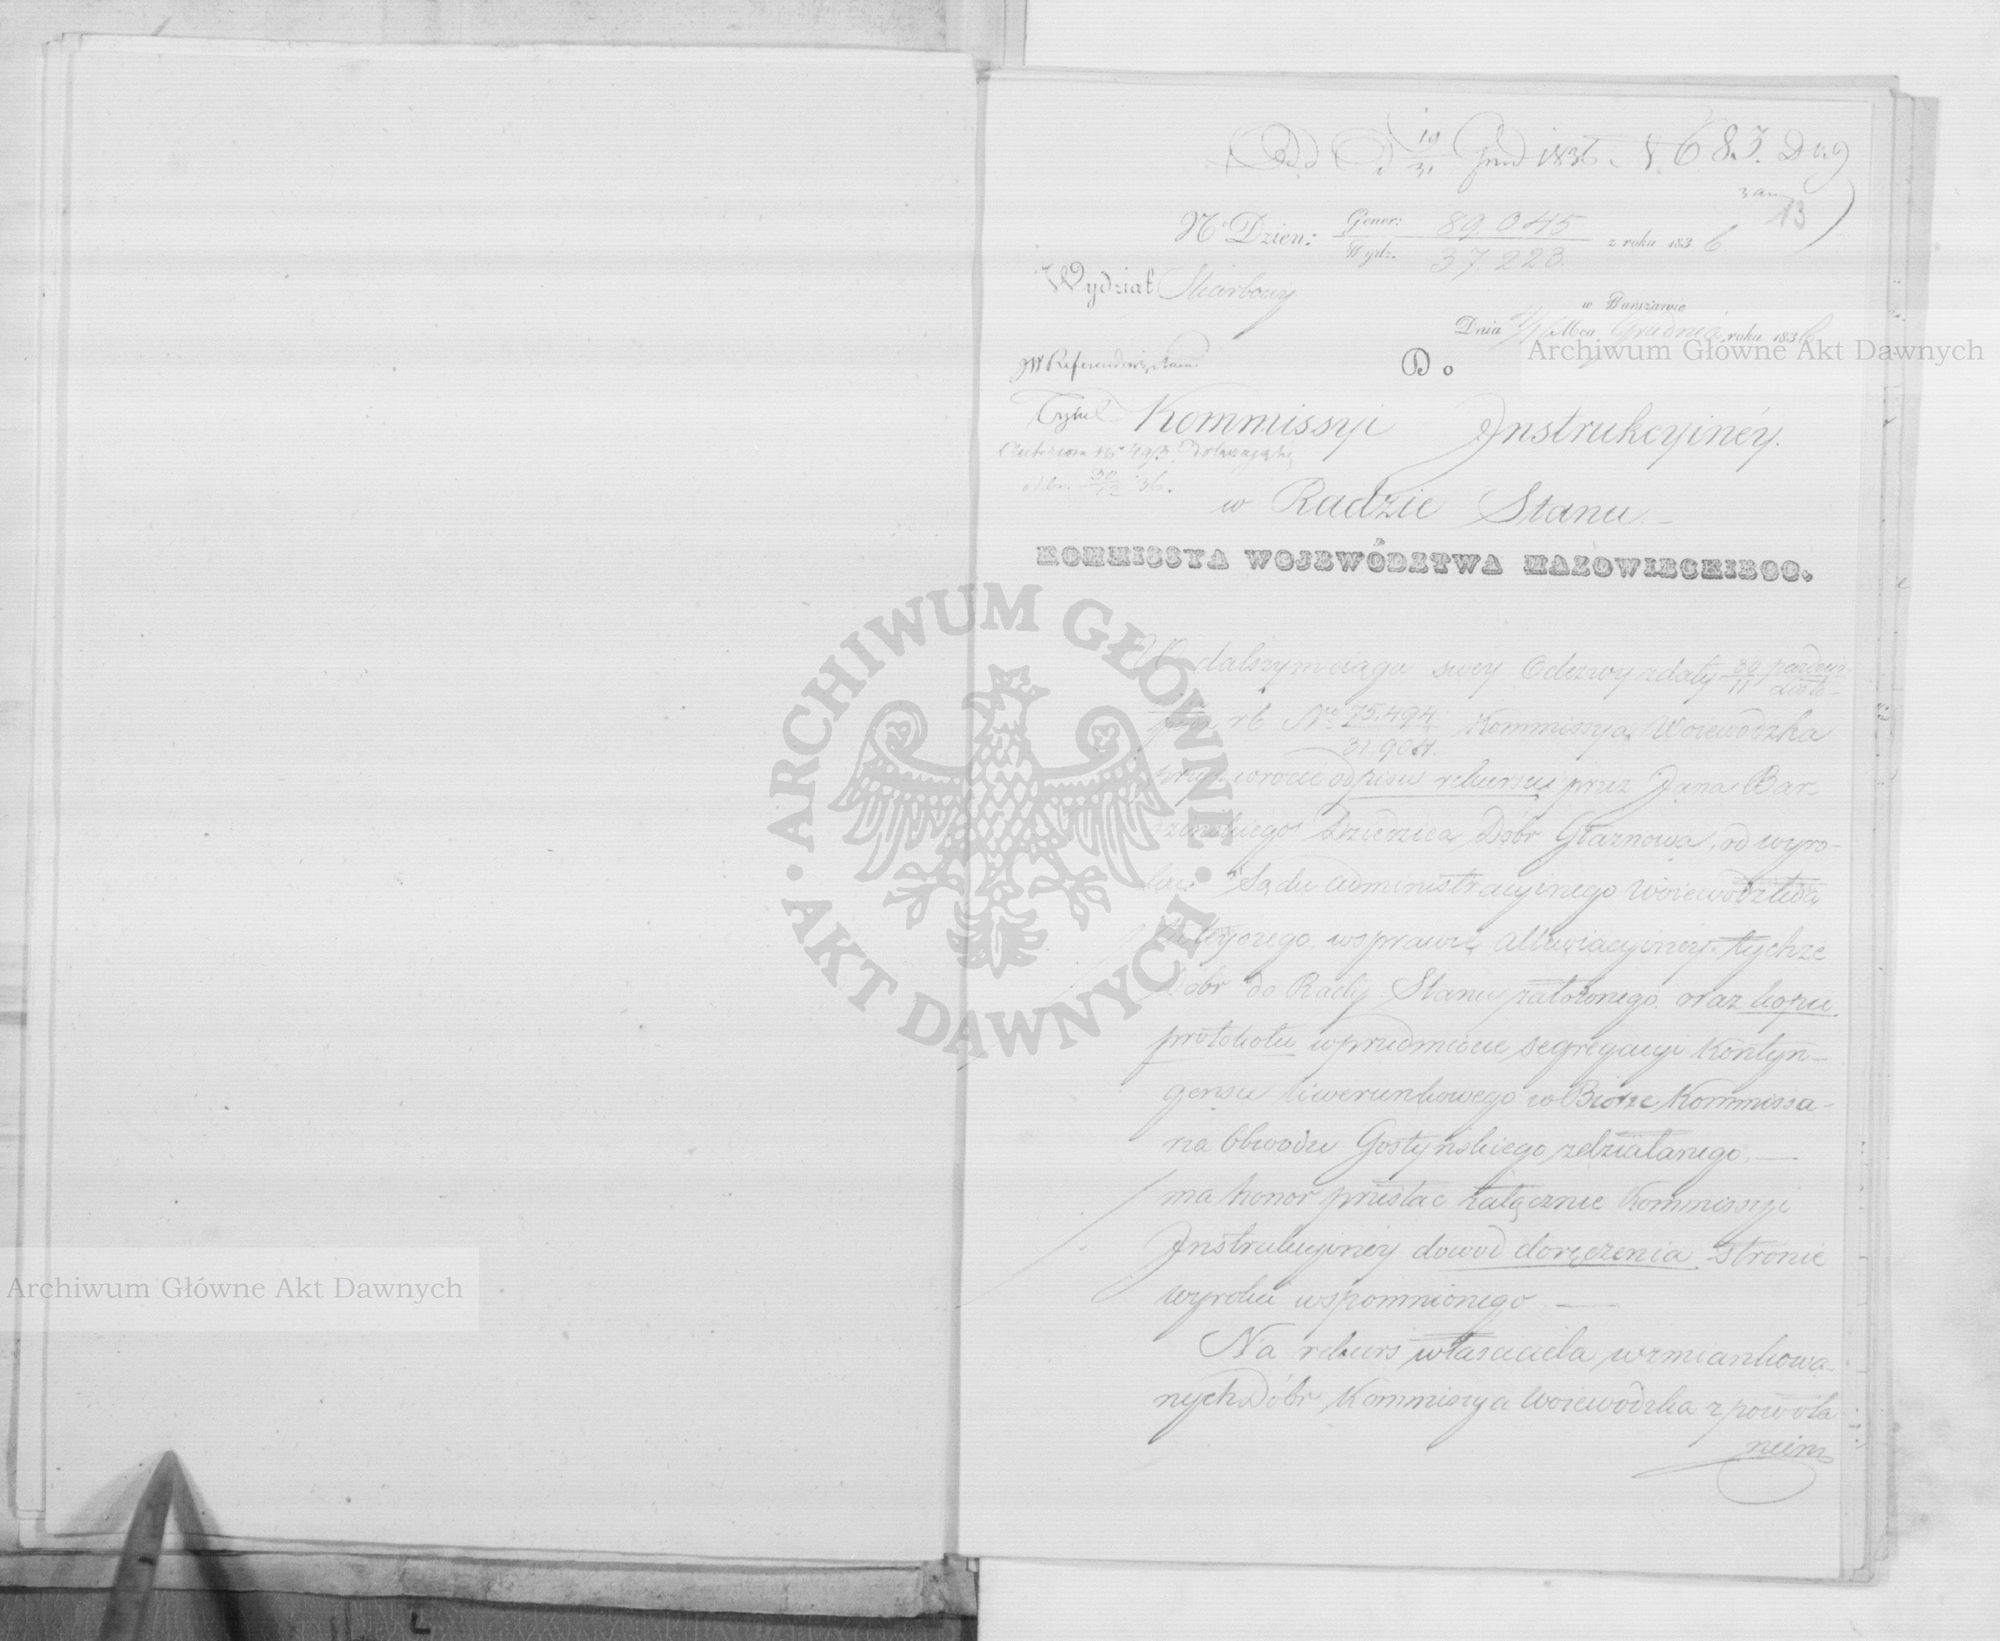 Grud 1836. N 683.
13
No Dzien: Gener: 89.045
Wydz. 37.223. z roku 1836
Wydział Skarbowy
w Warszawie
Dnia Mca Grudnia roku 1836
Archiwum Główne Akt Dawnych
Do
Kommissyi Instrukcyinéy.
w Radzie Stanu.
KOMMISSYA WOJEWÓDZTWA MAZOWIECKIEGO.
W dalszym ciągu swey Odezwy z daty 30/11 pazdzier-
listo-
pada rb No 75.494/31.904. Kommissya Woiewodzka
przy zwrocie odpisu rekursu przez Jana Bar-
Dziedzica Dóbr Głaznowa, od wyro-
Sądu administracyinego Woiewodztwa
tuteyszego, w sprawie alleviacyiney tychze
Dobr do Rady Stanu założonego, oraz kopii
protokołu w przedmiocie segregacyi Kontyn-
gensu liwerunkowego w Biorze Kommissa-
rza Obwodu Gostyńskiego zdziałanego. —
ma honor przesłac załącznie Kommissyi
Instrukcyiney dowod doręczenia stronie
wyroku wspomnionego. —
Na rekurs własciciela wzmiankowa-
nych Dóbr Kommissya Woiewodzka z powoła
niem
ARCHIWUM GŁÓWNE AKT DAWNYCH
Archiwum Główne Akt Dawnych